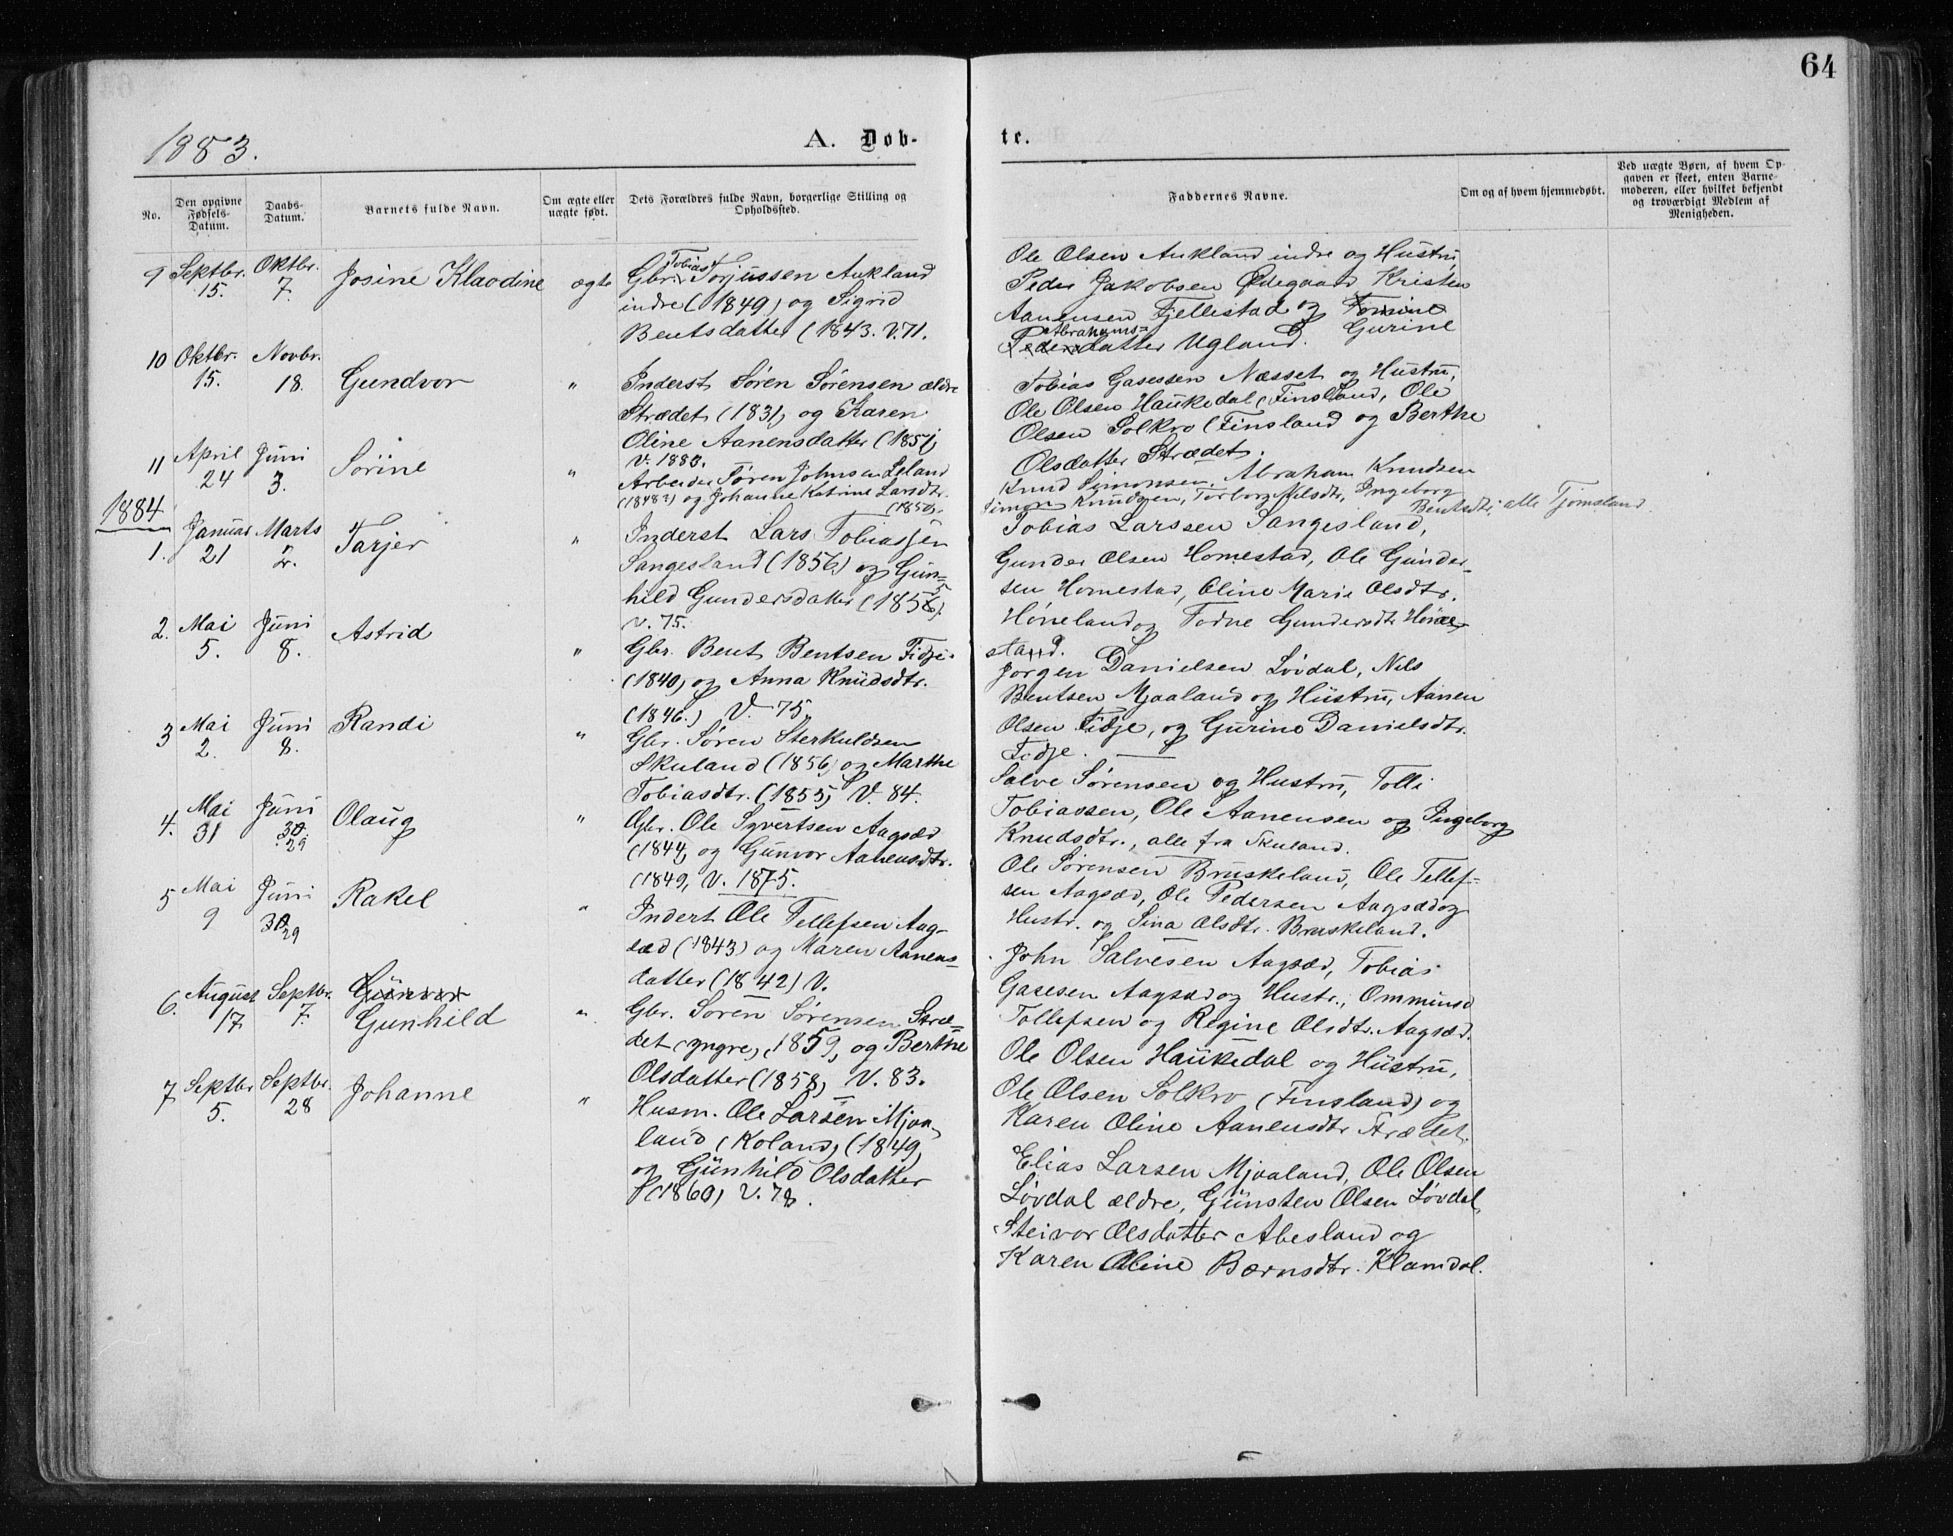 64
1883.
A. Døb-
te.
No.
Den opgivne Fødsels-Datum.
Daabs-Datum.
Barnets fulde Navn.
Om ægte eller uægte født.
Dets Forældres fulde Navn, borgerlige Stilling og Opholdssted.
Faddernes Navne.
Om og af hvem hjemmedøbt.
Ved uægte Børn, af hvem Opgaven er skeet, enten Barnemoderen, eller hvilket bekjendt og troværdigt Medlem af Menigheden.
9 Septbr. 15. Oktbr. 7. Josine Klaodine ægte
Gbr. Tobias Torjussen Aukland
indre (1849) og Sigrid
Bentsdatter (1843. V. 71.
Ole Olsen Aukland indre og Hustru
Peder Jakobsen Ødegaard Kristen
Aanensen Fjellestad og Tomine Gurine
Peders Abrahams=datter Ugland.
10 Oktbr. 15. Novbr. 18. Gundvor "
Inderst Søren Sørensen ældre
Strædet (1831) og Karen
Oline Aanensdatter (1851)
V. 1883.
Tobias Gasessen Næsset og Hustru,
Ole Olsen Haukedal (Finsland, Ole
Olsen Solkro (Finsland og Berthe
Olsdatter Strædet.
11 April 24 Juni 3. Sørine "
Arbeider Søren Johnsen Leland
(1848?) og Johanne Katrine Larsdtr.
(1850).
Knud Simonsen, Abraham Knudsen
Simon Knudsen, Torborg Nilsdtr, Ingeborg
Bentsdtr. alle Tjomsland.
1884
1. Januar 21 Marts 2. Tarjer "
Inderst Lars Tobiassen
Sangesland (1856) og Gun=
hild Gundersdatter (1855).
V. 75.
Tobias Larssen Sangesland,
Gunder Olsen Homestad, Ole Gunder-
sen Homestad, Oline Marie Olsdtr.
Høneland og Todne Gundersdtr Høne
stand.
2. Mai 5. Juni 8. Astrid "
Gbr. Bent Bentsen Fidje
(1840) og Anna Knudsdtr.
(1846.) V. 75
Jørgen Danielsen Løvdal, Nils
Bentsen Mjaaland og Hustru, Aanen
Olsen Fidje, og Gurine Danielsdtr.
Fidje.
3 Mai 2. Juni 8. Randi "
Gbr. Søren Sterkuldsen
Skuland (1856) og Marthe
Tobiasdtr. (1855) V. 84.
Salve Sørensen og Hustru, Tolli
Tobiassen, Ole Aanensen og Ingeborg
Knudsdtr., alle fra Skuland.
4. Mai 31 Juni 30. 29 Olaug "
Gbr. Ole Syvertsen Aagsæd
(1844) og Gunvor Aanensdtr.
(1849, V. 1875.
Ole Sørensen Bruskeland, Ole Tellef-
sen Aagsæd, Ole Pedersen Aagsæd og
Hustr. og Sina Olsdtr. Bruskeland.
5 Mai 9 Juni 30 29 Rakel "
Indert Ole Tellefsen Aag-
sæd (1843) og Maren Aanens-
datter (1842) V.
John Salvesen Aagsæd, Tobias
Gasesen Aagsæd og Hustr., Ommund
Tollefsen og Regine Olsdtr. Aagsæd.
6. August 17 Septbr. 7. Gunvor Gunhild "
Gbr. Søren Sørensen Stræ-
det (yngre), 1859, og Berthe
Olsdatter (1858) V. 83.
Ole Olsen Haukedal og Hustru,
Ole Olsen Solkro (Finsland) og
Karen Oline Aanensdtr Strædet.
7 Septbr 5. Septbr. 28 Johanne "
Husm. Ole Larsen Mjaa-
land (Koland) (1849)
og Gunhild Olsdatter
(1860) V. 78.
Elias Larsen Mjaaland, Ole Olsen
Løvdal ældre, Gunsten Olsen Løvdal,
Steivor Olsdatter Abesland og
Karen Oline Børnsdtr. Klamdal.